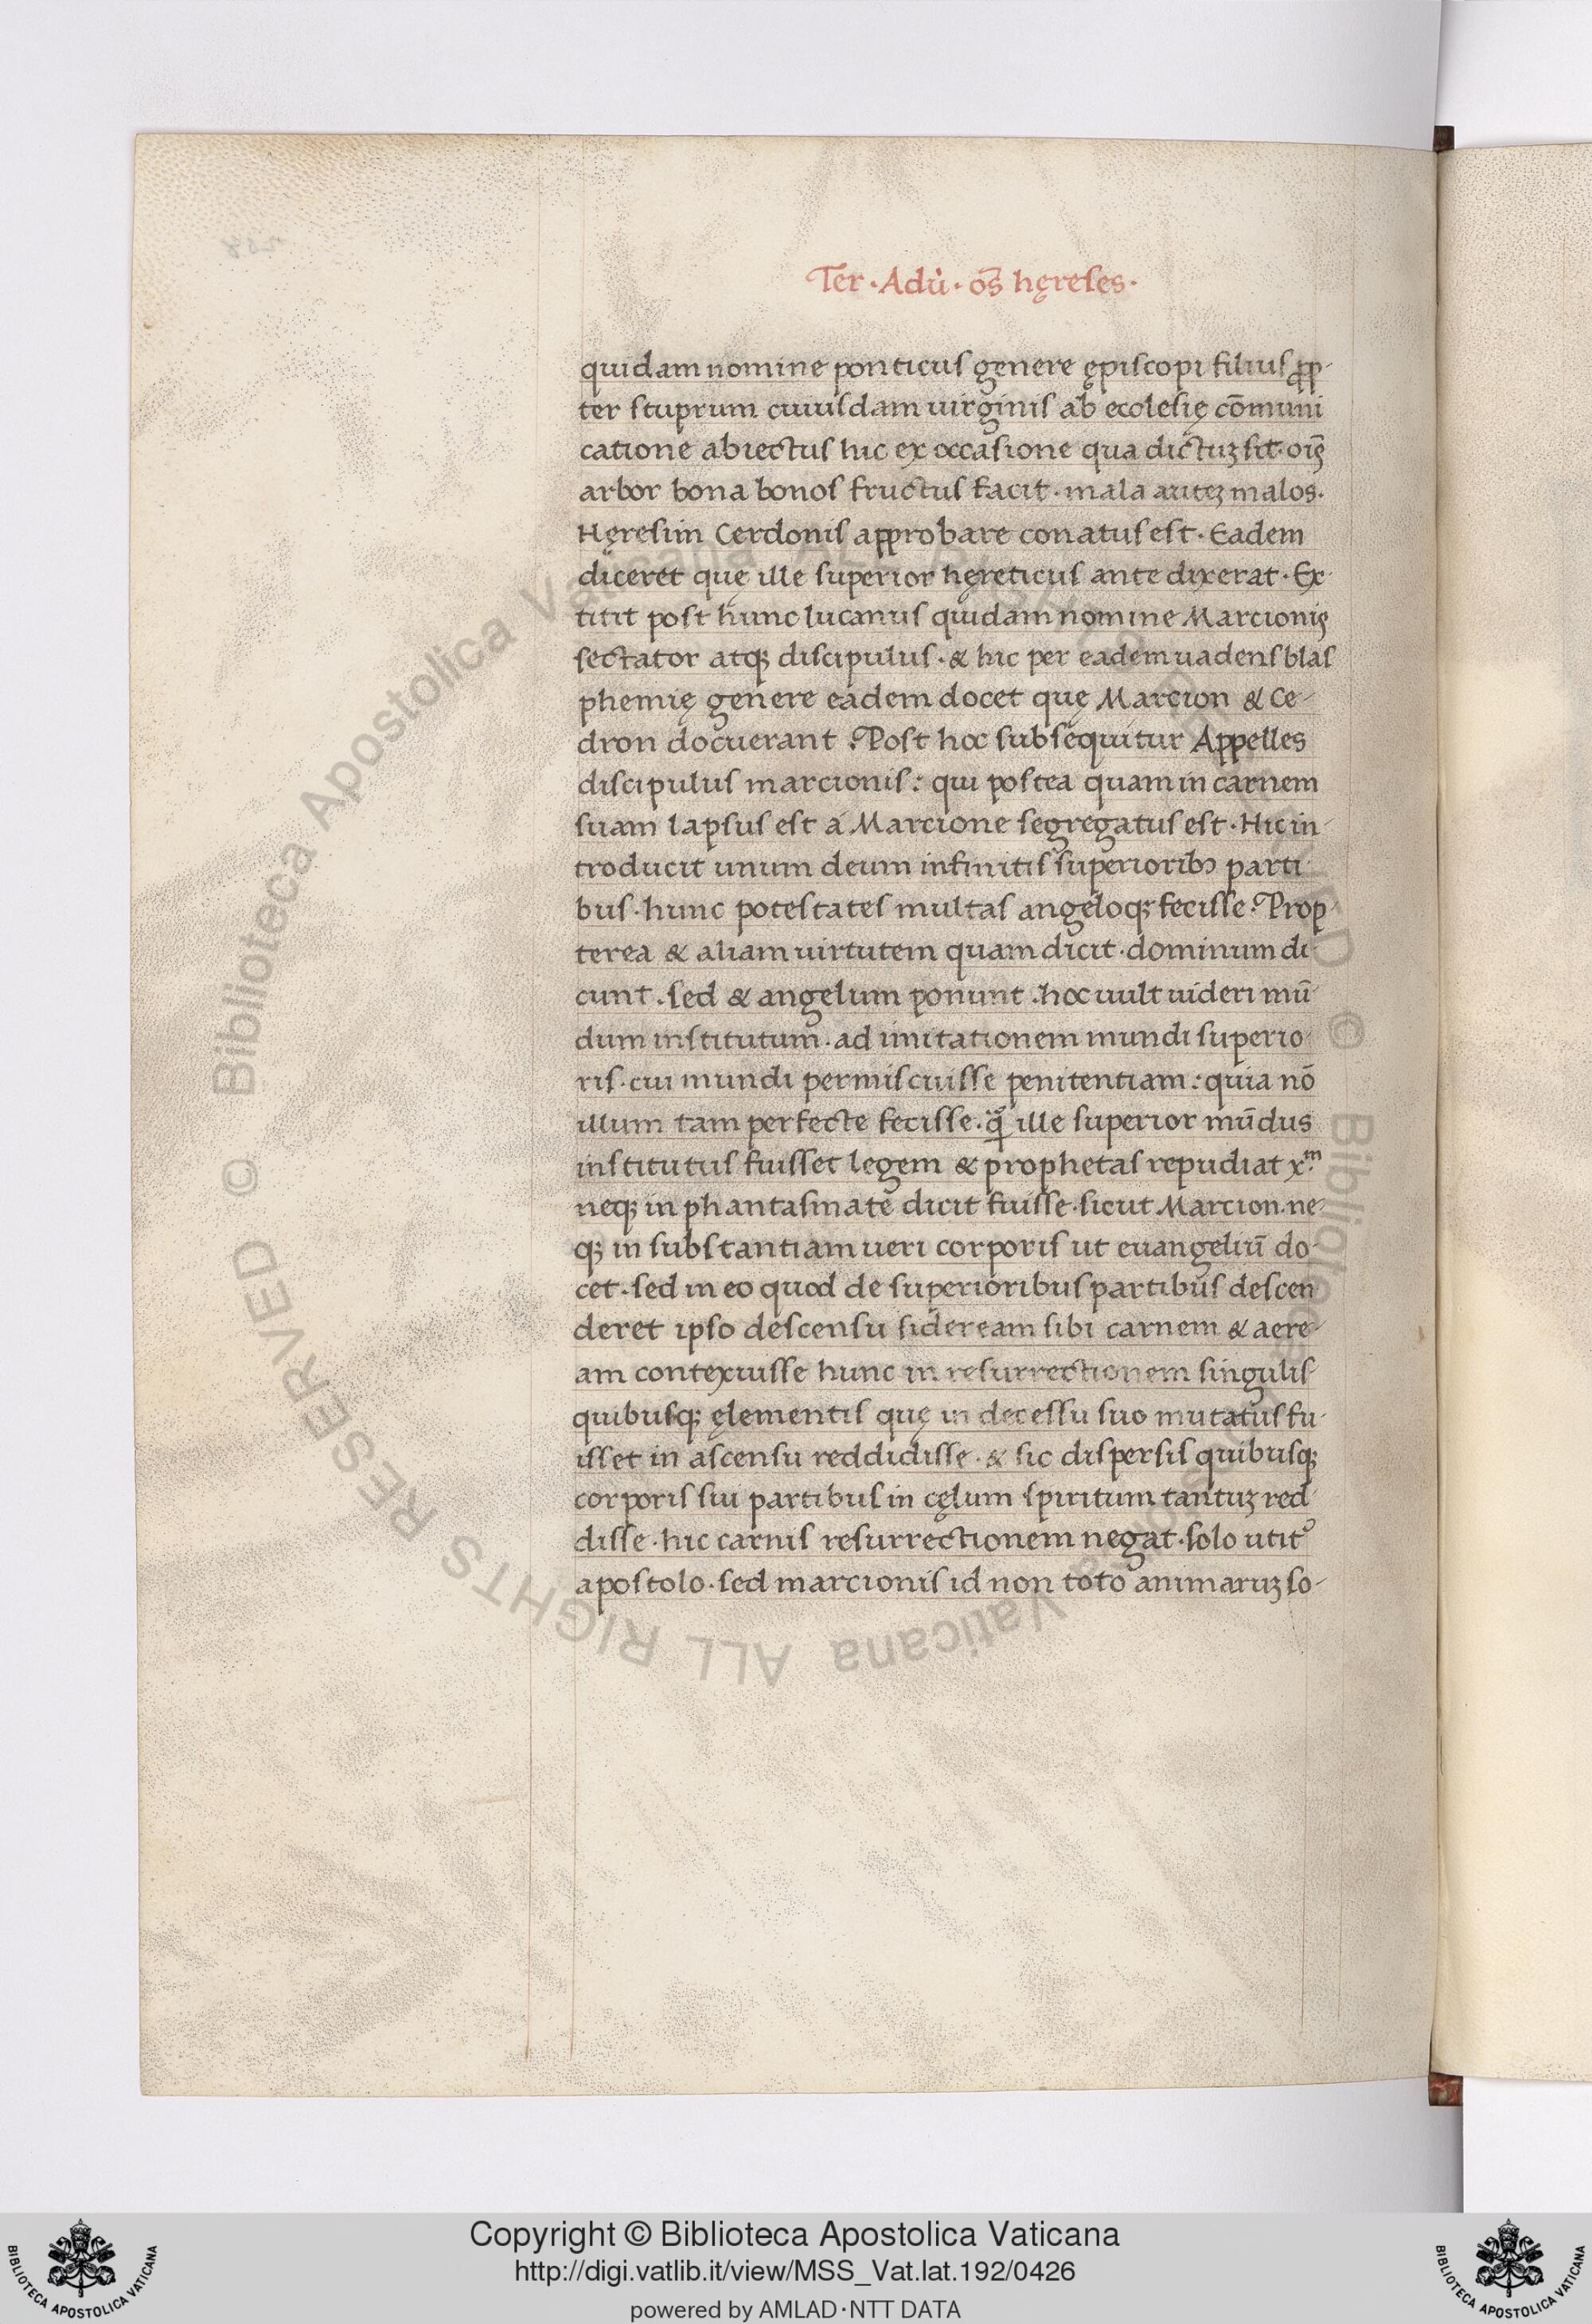 Ter · Adu̇ · oēs hęreses ·
quidam nomine ponticus genere ępiscopi filius prop-
ter stuprum cuiusdam uirginis ab ecclesię cōmuni
catione abiectus hic ex occasione qua dictuꝫ sit · oīs
arbor bona bonos fructus facit · mala auteꝫ malos ·
Hęresim Cerdonis approbare conatus est · Eadem
diceret quę ille superior hęreticus ante dixerat · Ex-
titit post hunc lucanus quidam nomine Marcionis
sectator atqꝫ discipulus · & hic per eadem uadens blas
phemię genere eadem docet quę Marcion & Ce-
dron docuerant : Post hoc subsequitur Appelles
discipulus marcionis : qui postea quam in carnem
suam lapsus est á Marcione segregatus est · Hic in-
troducit unum deum infinitis superioribꝫ parti
bus · hunc potestates multas angeloqꝫ fecisse : Prop-
terea & aliam uirtutem quam dicit · dominum di-
cunt · sed & angelum ponunt · hoc uult uideri mū-
dum institutum · ad imitationem mundi superio-
ris · cui mundi permiscuisse penitentiam : quia nō
illum tam perfecte fecisse · ꝙ ille superior mūdus
institutus fuisset legem & prophetas repudiat xᵐ·
neqꝫ in phantasmate dicit fuisse · sicut Marcion · ne-
qꝫ in substantiam ueri corporis ut euangeliū do-
cet · sed in eo quod de superioribus partibus descen
deret ipso descensu sideream sibi carnem & aere-
am contexuisse hunc in resurrectionem singulis
quibusqꝫ ęlementis quę in decessu suo mutatus fu-
isset in ascensu reddidisse · & sic dispersis quibusqꝫ
corporis sui partibus in cęlum spiritum tantuꝫ red-
disse · hic carnis resurrectionem negat · solo utit᷒
apostolo · sed marcionis id non toto animaruꝫ so-
Copyright © Biblioteca Apostolica Vaticana
http://digi.vatlib.it/view/MSS_Vat.lat.192/0426
powered by AMLAD·NTT DATA
BIBLIOTECA APOSTOLICA VATICANA
BIBLIOTECA APOSTOLICA VATICANA
© Biblioteca Apostolica Vaticana ALL RIGHTS RESERVED
© Biblioteca Apostolica Vaticana ALL RIGHTS RESERVED